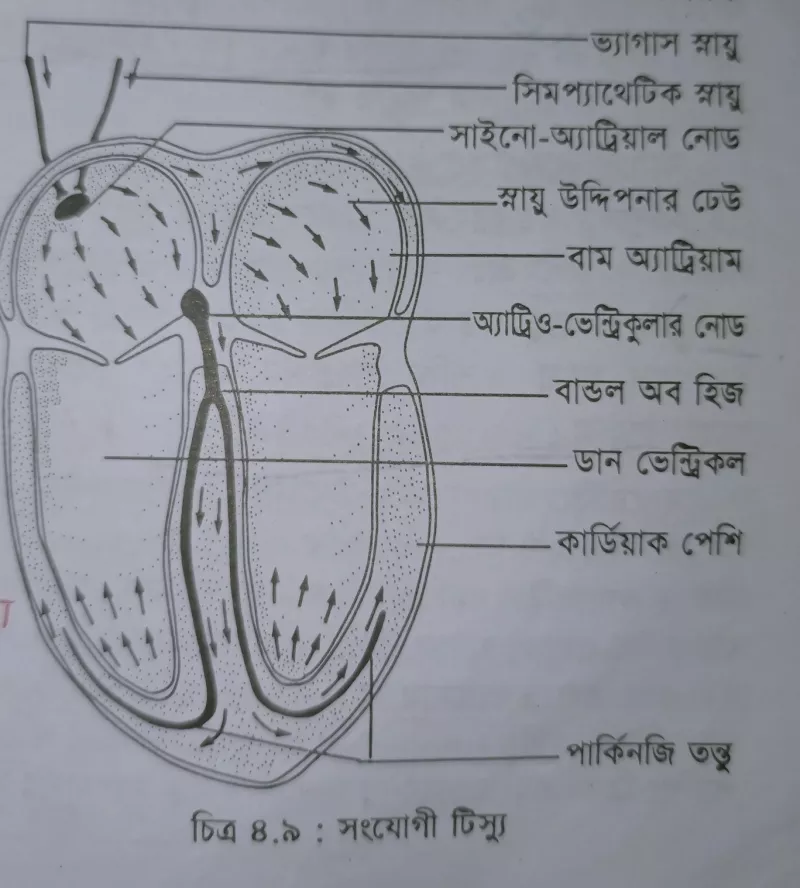 ভ্যাগাস স্নায়ু
সিমপ্যাথেটিক স্নায়ু
সাইনো-অ্যাট্রিয়াল নোড
স্নায়ু উদ্দিপনার ঢেউ
বাম অ্যাট্রিয়াম
অ্যাট্রিও-ভেন্ট্রিকুলার নোড
বান্ডল অব হিজ
ডান ভেন্ট্রিকল
কার্ডিয়াক পেশি
পার্কিনজি তন্তু
চিত্র ৪.৯ : সংযোগী টিস্যু